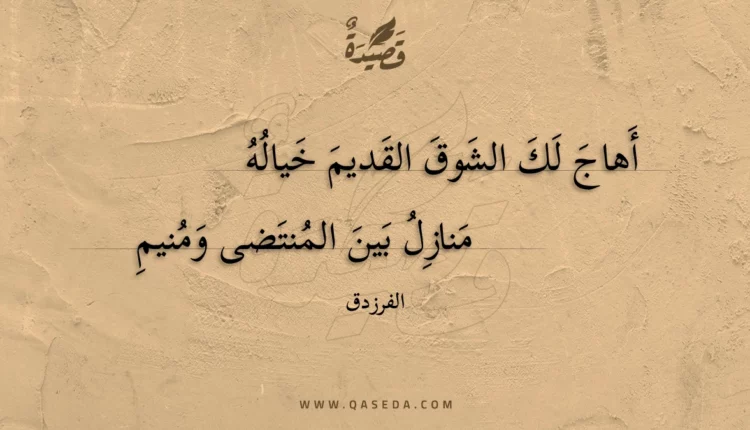 قَصِيدَةٌ
أَهاجَ لَكَ الشَوقَ القَديمَ خَيالُهُ
مَنازِلُ بَينَ المُنتَضى وَمُنيمِ
الفرزدق
WWW.QASEDA.COM